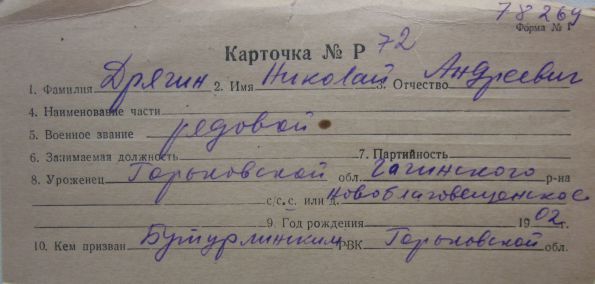 78264
Форма № 1
Карточка № Р 72
1. Фамилия Дрягин 2. Имя Николай 3. Отчество Андреевич
4. Наименование части
5. Военное звание редовой
6. Занимаемая должность 7. Партийность
8. Уроженец Горьковской обл. Гагинского р-на
с/с.с. или д. Новоблаговещенское
9. Год рождения 1902 г.
10. Кем призван Бутурлинским РВК Горьковской обл.